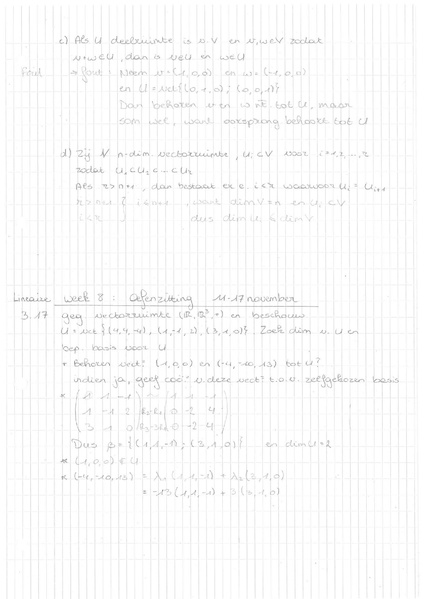 c) Als U deelruimte is v. V en v, w ∈ V zodat
v+w ∈ U, dan v ∈ U en w ∈ U
Fout → fout: Neem v = (1,0,0) en w = (-1,0,0)
en U = vct{(0,1,0), (0,0,1)}
Dan behoren v en w niet tot U, maar
som wel, want oorsprong behoort tot U
d) Zij V n-dim. vectorruimte, Ui ⊂ V voor i=1,2,...,r
zodat U1 ⊂ U2 ⊂ ... ⊂ Ur
Als r > n+1, dan bestaat er e. i<r waarvoor Ui = Ui+1
want dim V = n en Ui ⊂ V
i<r dus dim Ui ≤ dim V
Lineaire week 8: Oefenzitting 11-17 november
3.17 geg vectorruimte (ℝ, ℝ³, +) en beschouw
U = vct{(4,4,-4), (1,-1,2), (3,1,0)}. Zoek dim v. U en
bep. basis voor U
* Behoren vect? (1,0,0) en (-4,-10,13) tot U?
indien ja, geef coö. v. deze vect? t.o.v. zelfgekozen basis
* (1 1 -1) ~ (1 1 -1)
1 -1 2 0 -2 4
3 1 0 0 -2 4
Dus β = {(1,1,-1), (3,1,0)} en dim U = 2
* (1,0,0) ∉ U
* (-4,-10,13) = λ1 (1,1,-1) + λ2 (3,1,0)
= -13 (1,1,-1) + 3 (3,1,0)